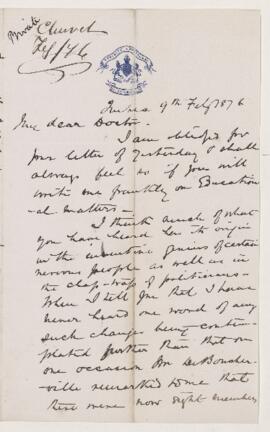 Private
Feb/76
9th Feby 1876
My dear Doctor
I am obliged for
your letter of yesterday & shall
always feel so if you will
write me frankly on Education
-al matters —
I think much of what
you have heard has its origin
in the inventive genius of certain
nervous people as well as in
the clap-trap of politicians —
When I tell you that I have
never heard one word of any
such changes being contem-
plated further than that on
one occasion Mr DeBoucher-
ville remarked to me that
there were now eight members